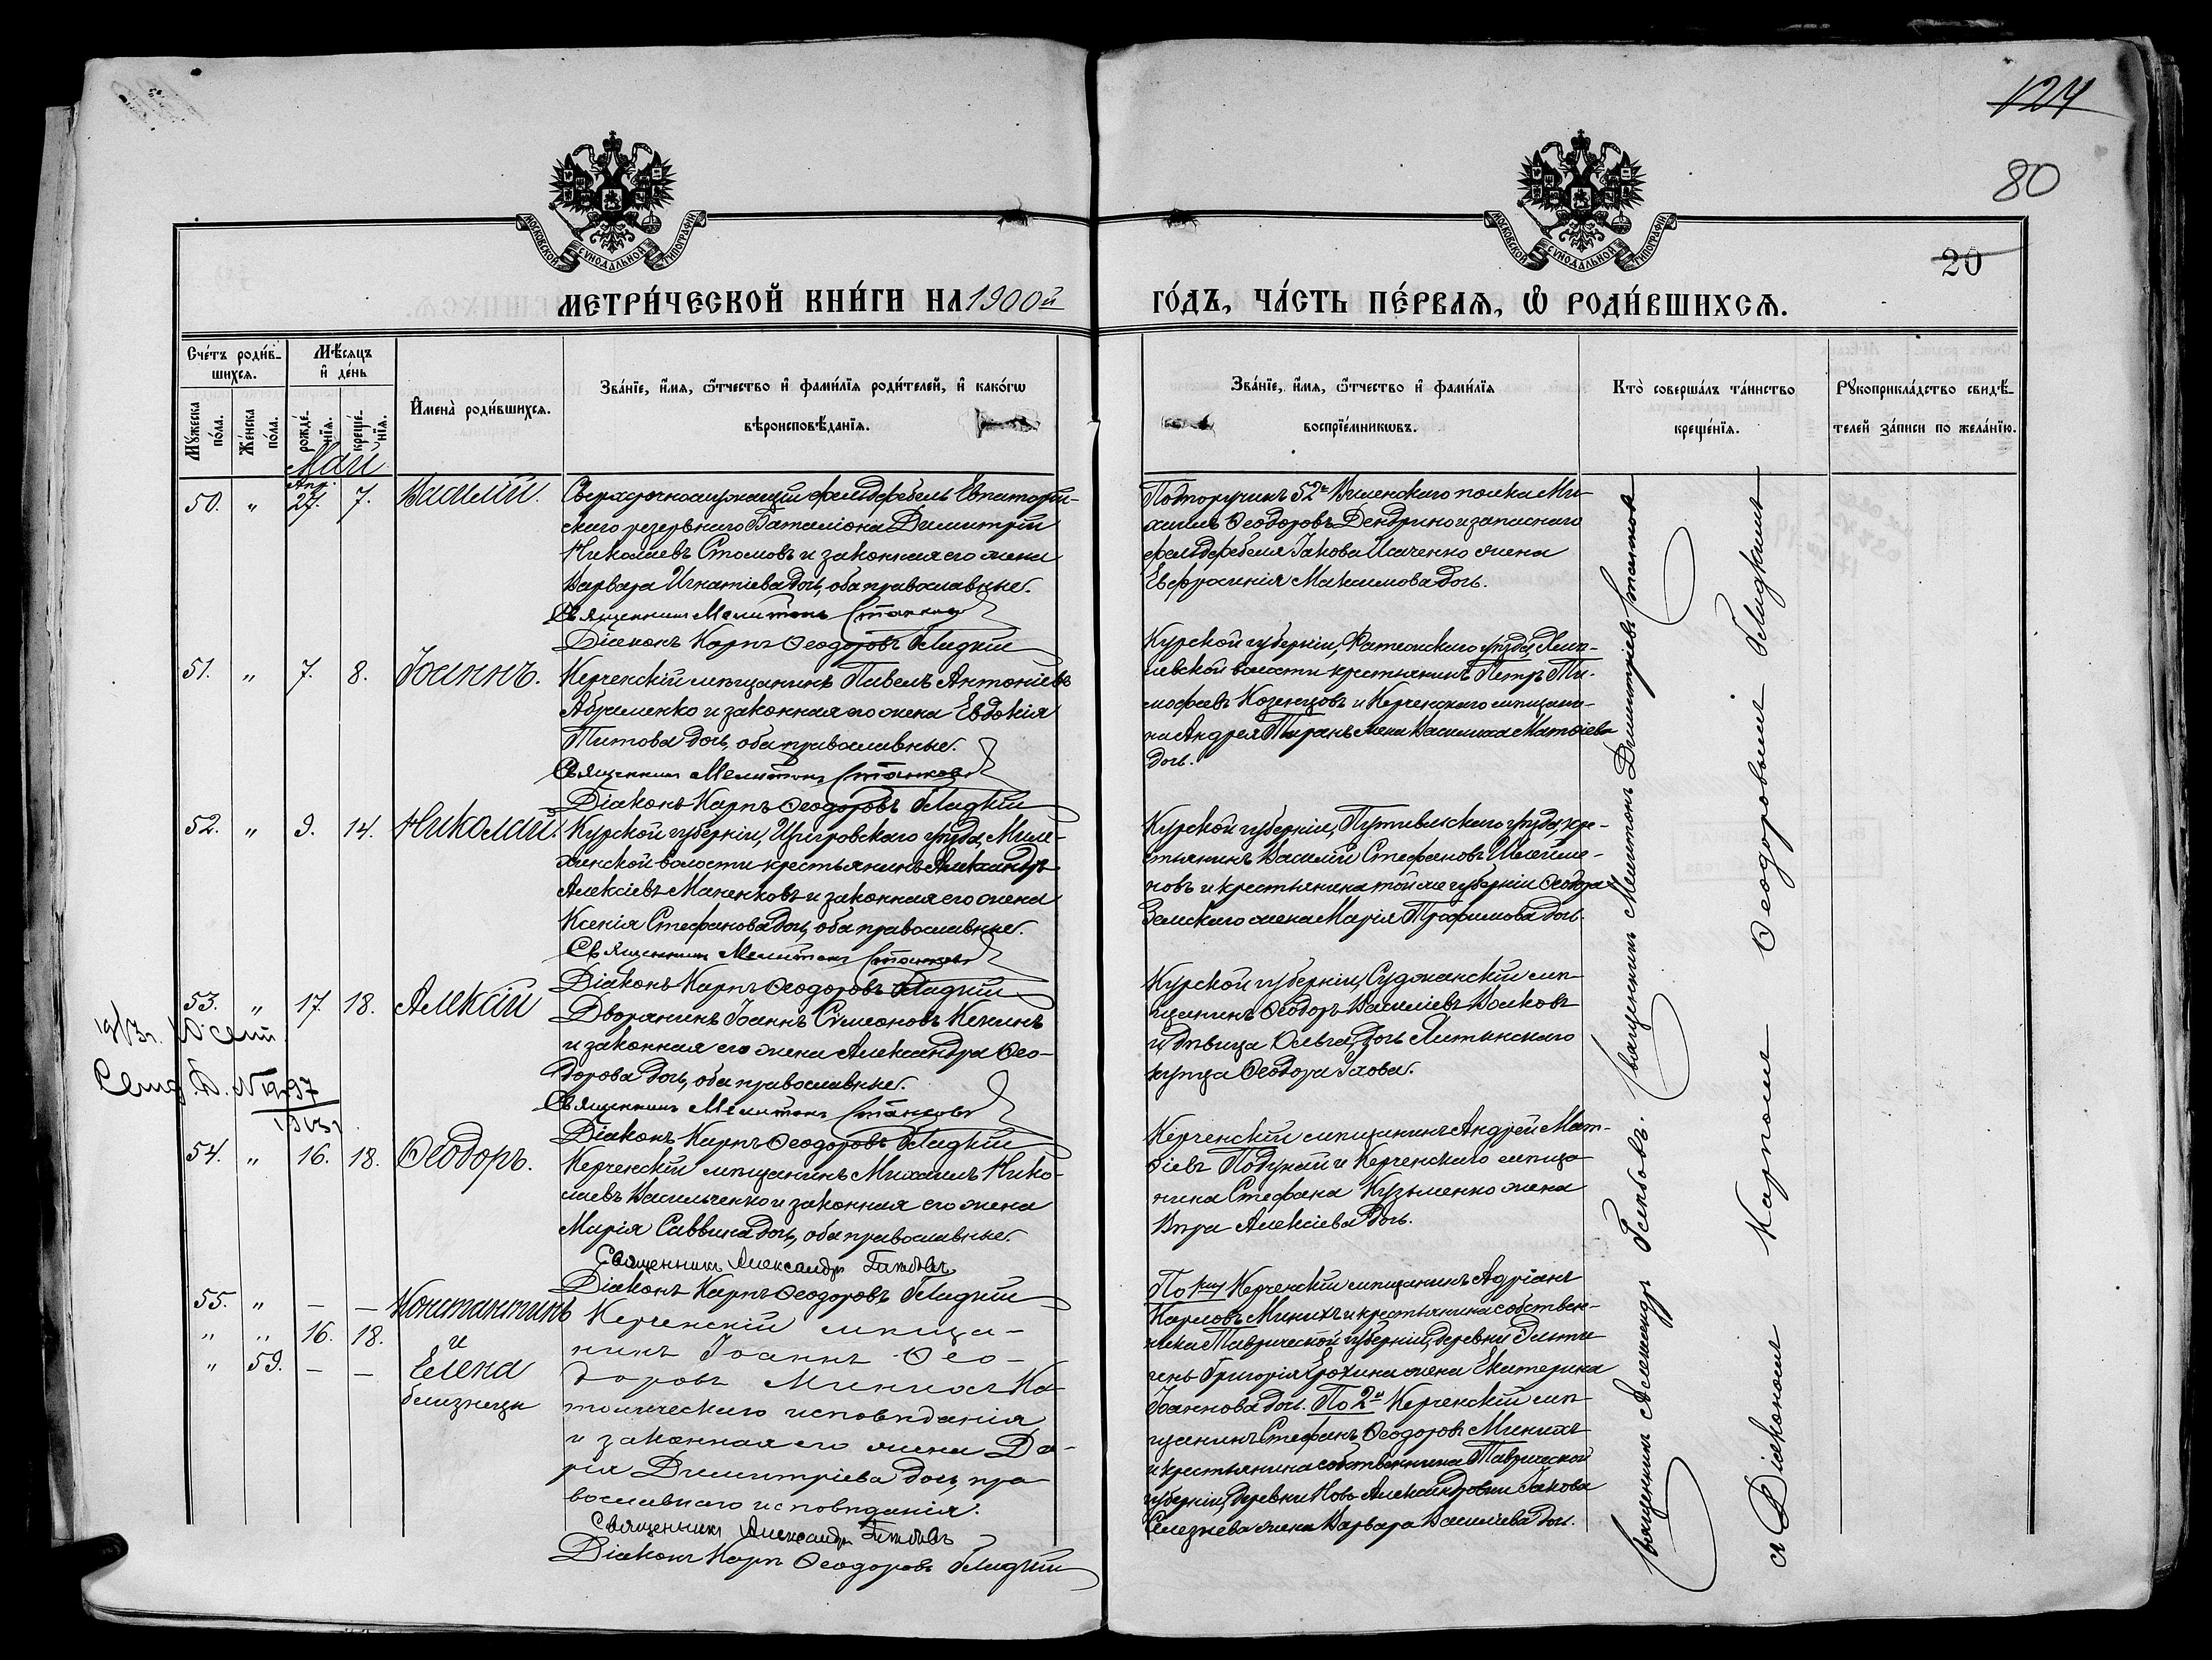 124
80
МОСКОВСКОЙ СѴНОДАЛЬНОЙ ТИПОГРАФІИ
МОСКОВСКОЙ СѴНОДАЛЬНОЙ ТИПОГРАФІИ
20
МЕТРИ́ЧЕСКОЙ КНИ́ГИ НА 1900й
ГО́ДЪ, ЧА́СТЬ ПЕ́РВАѦ, Ѡ҆ РОДИ́ВШИХСѦ.
Сче́тъ роди́в-
шихся.
Мѣ́сяцъ
и҆ де́нь
Мꙋ́жеска
по́ла.
Же́нска
по́ла.
рожде́-
нїя.
креще́-
нїя.
И҆мена̀ роди́вшихся.
Зва́нїе, и҆́мя, ѻ҆́тчество и҆ фами́лїя роди́телей, и҆ како́гѡ
вѣроисповѣ́данїя.
Зва́нїе, и҆́мя, ѻ҆́тчество и҆ фами́лїя
воспрїе́мникѡвъ.
Кто̀ соверша́лъ та́инство
креще́нїя.
Рꙋкоприкла́дство свидѣ́-
телей за́писи по жела́нїю.
Май
50. " Апр. 27. 7. Василій.
Сверхсрочнослужащій фельдфебель Евпаторій-
скаго резервнаго Баталіона Димитрій
Николаевъ Стоговъ и законная его жена
Варвара Игнатіева дочь, оба православные.
Священникъ Мелитонъ Станковъ
Діаконъ Карпъ Ѳеодоровъ Гладкій
Подпоручикъ 52го Виленскаго полка Ми-
хаилъ Ѳеодоровъ Дендрино и запаснаго
фельдфебеля Іакова Исаченко жена
Евфросинія Максимова дочь.
51. " 7. 8. Іоаннъ.
Керченскій мѣщанинъ Павелъ Антоніевъ
Абраменко и законная его жена Евдокія
Титова дочь, оба православные.
Священникъ Мелитонъ Станковъ
Діаконъ Карпъ Ѳеодоровъ Гладкій
Курской губерніи, Фатежскаго уѣзда,
волости крестьянинъ Петръ Ти-
моѳеевъ Козенцовъ и Керченскаго мѣщани-
на Андрея жена Василиса Матѳіева
дочь.
52. " 9. 14. Николай.
Курской губерніи, Щигровскаго уѣзда,
волости крестьянинъ Александръ
Алексіевъ Макенковъ и законная его жена
Ксенія Стефанова дочь, оба православные.
Священникъ Мелитонъ Станковъ
Діаконъ Карпъ Ѳеодоровъ Гладкій
Курской губерніи, Путивльскаго уѣзда, кре-
стьянинъ Василій Стефановъ
и крестьянина той же губерніи Ѳеодора
Земскаго жена Марія Трофимова дочь.
53. " 17. 18. Алексій
Дворянинъ Іоаннъ Симеоновъ Кекинъ
и законная его жена Александра Ѳео-
дорова дочь, оба православные.
Священникъ Мелитонъ Станковъ
Діаконъ Карпъ Ѳеодоровъ Гладкій
Курской губерніи, Суджанскій мѣ-
щанинъ Ѳеодоръ Василіевъ Волковъ
и дѣвица Ольга, дочь Ялтинскаго
купца Ѳеодора
1913г. 10 сент.
№ 1997
54. " 16. 18. Ѳеодоръ.
Керченскій мѣщанинъ Михаилъ Нико-
лаевъ Васильченко и законная его жена
Марія Саввина дочь, оба православные.
Священникъ Александръ
Діаконъ Карпъ Ѳеодоровъ Гладкій
Керченскій мѣщанинъ Андрей Мат-
ѳіевъ и Керченскаго мѣща-
нина Стефана Кузьменко жена
Вѣра Алексіева дочь.
55. " — — Константинъ
" " 16. 18. и
" 59. — — Елена
близнецы
Керченскій мѣща-
нинъ Іоаннъ Ѳео-
доровъ Минихъ Ка-
толическаго исповѣданія
и законная его жена Да-
рія Димитріева дочь, пра-
вославнаго исповѣданія.
Священникъ Александръ
Діаконъ Карпъ Ѳеодоровъ Гладкій
По 1му Керченскій мѣщанинъ Адріанъ
Карловъ Минихъ и крестьянина собствен-
ника Таврической губерніи, деревни
Григорія Ерохина жена Екатерина
Іоаннова дочь. По 2й Керченскій мѣ-
щанинъ Стефанъ Ѳеодоровъ Минихъ
и крестьянина собственника Таврической
губерніи, деревни Ново Александровки Іакова
Селезнева жена Варвара Василіева дочь.
Священникъ Александръ
Священникъ Мелитонъ Димитріевъ Станковъ
съ Діакономъ Карпомъ Ѳеодоровымъ Гладкимъ